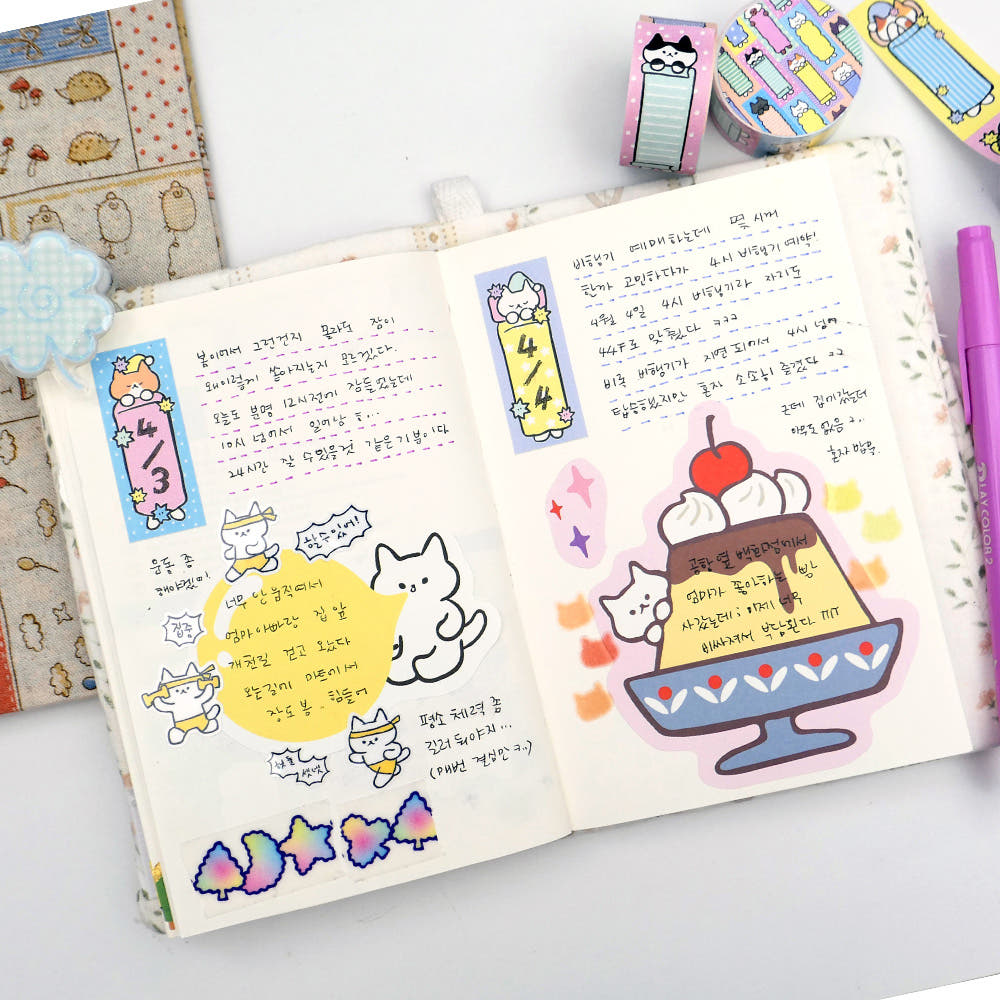 봄이어서 그런건지 몰라도 잠이
왜이렇게 쏟아지는지 모르겠다.
오늘도 분명 12시전에 잠들었는데
10시 넘어서 일어남 ㅎ...
24시간 잘 수있을것 같은 기분이다
4/3
운동 좀
해야겠어!
할 수 있어!
집중
너무 안 움직여서
엄마아빠랑 집 앞
개천길 걷고 왔다
오는길에 마트에서
장도 봄.. 힘들어
평소 체력 좀
길러 둬야지...
(매번 결심만 ㅎ..)
비행기 예매하는데 몇 시꺼
할까 고민하다가 4시 비행기 예약!
4월 4일 4시 비행기라 자리도
44F로 맞췄다 ㅋㅋㅋ
비록 비행기가 지연 되어서 4시 넘어
탑승했지만 혼자 소소히 즐겼다 ㅋㅋ
근데 집에갔는데
아무도 없음
혼자 밥묵.
4/4
공항 옆 백화점에서
엄마가 좋아하는 빵
사갔는데; 이제 너무
비싸져서 부담된다
PLAY COLOR 2